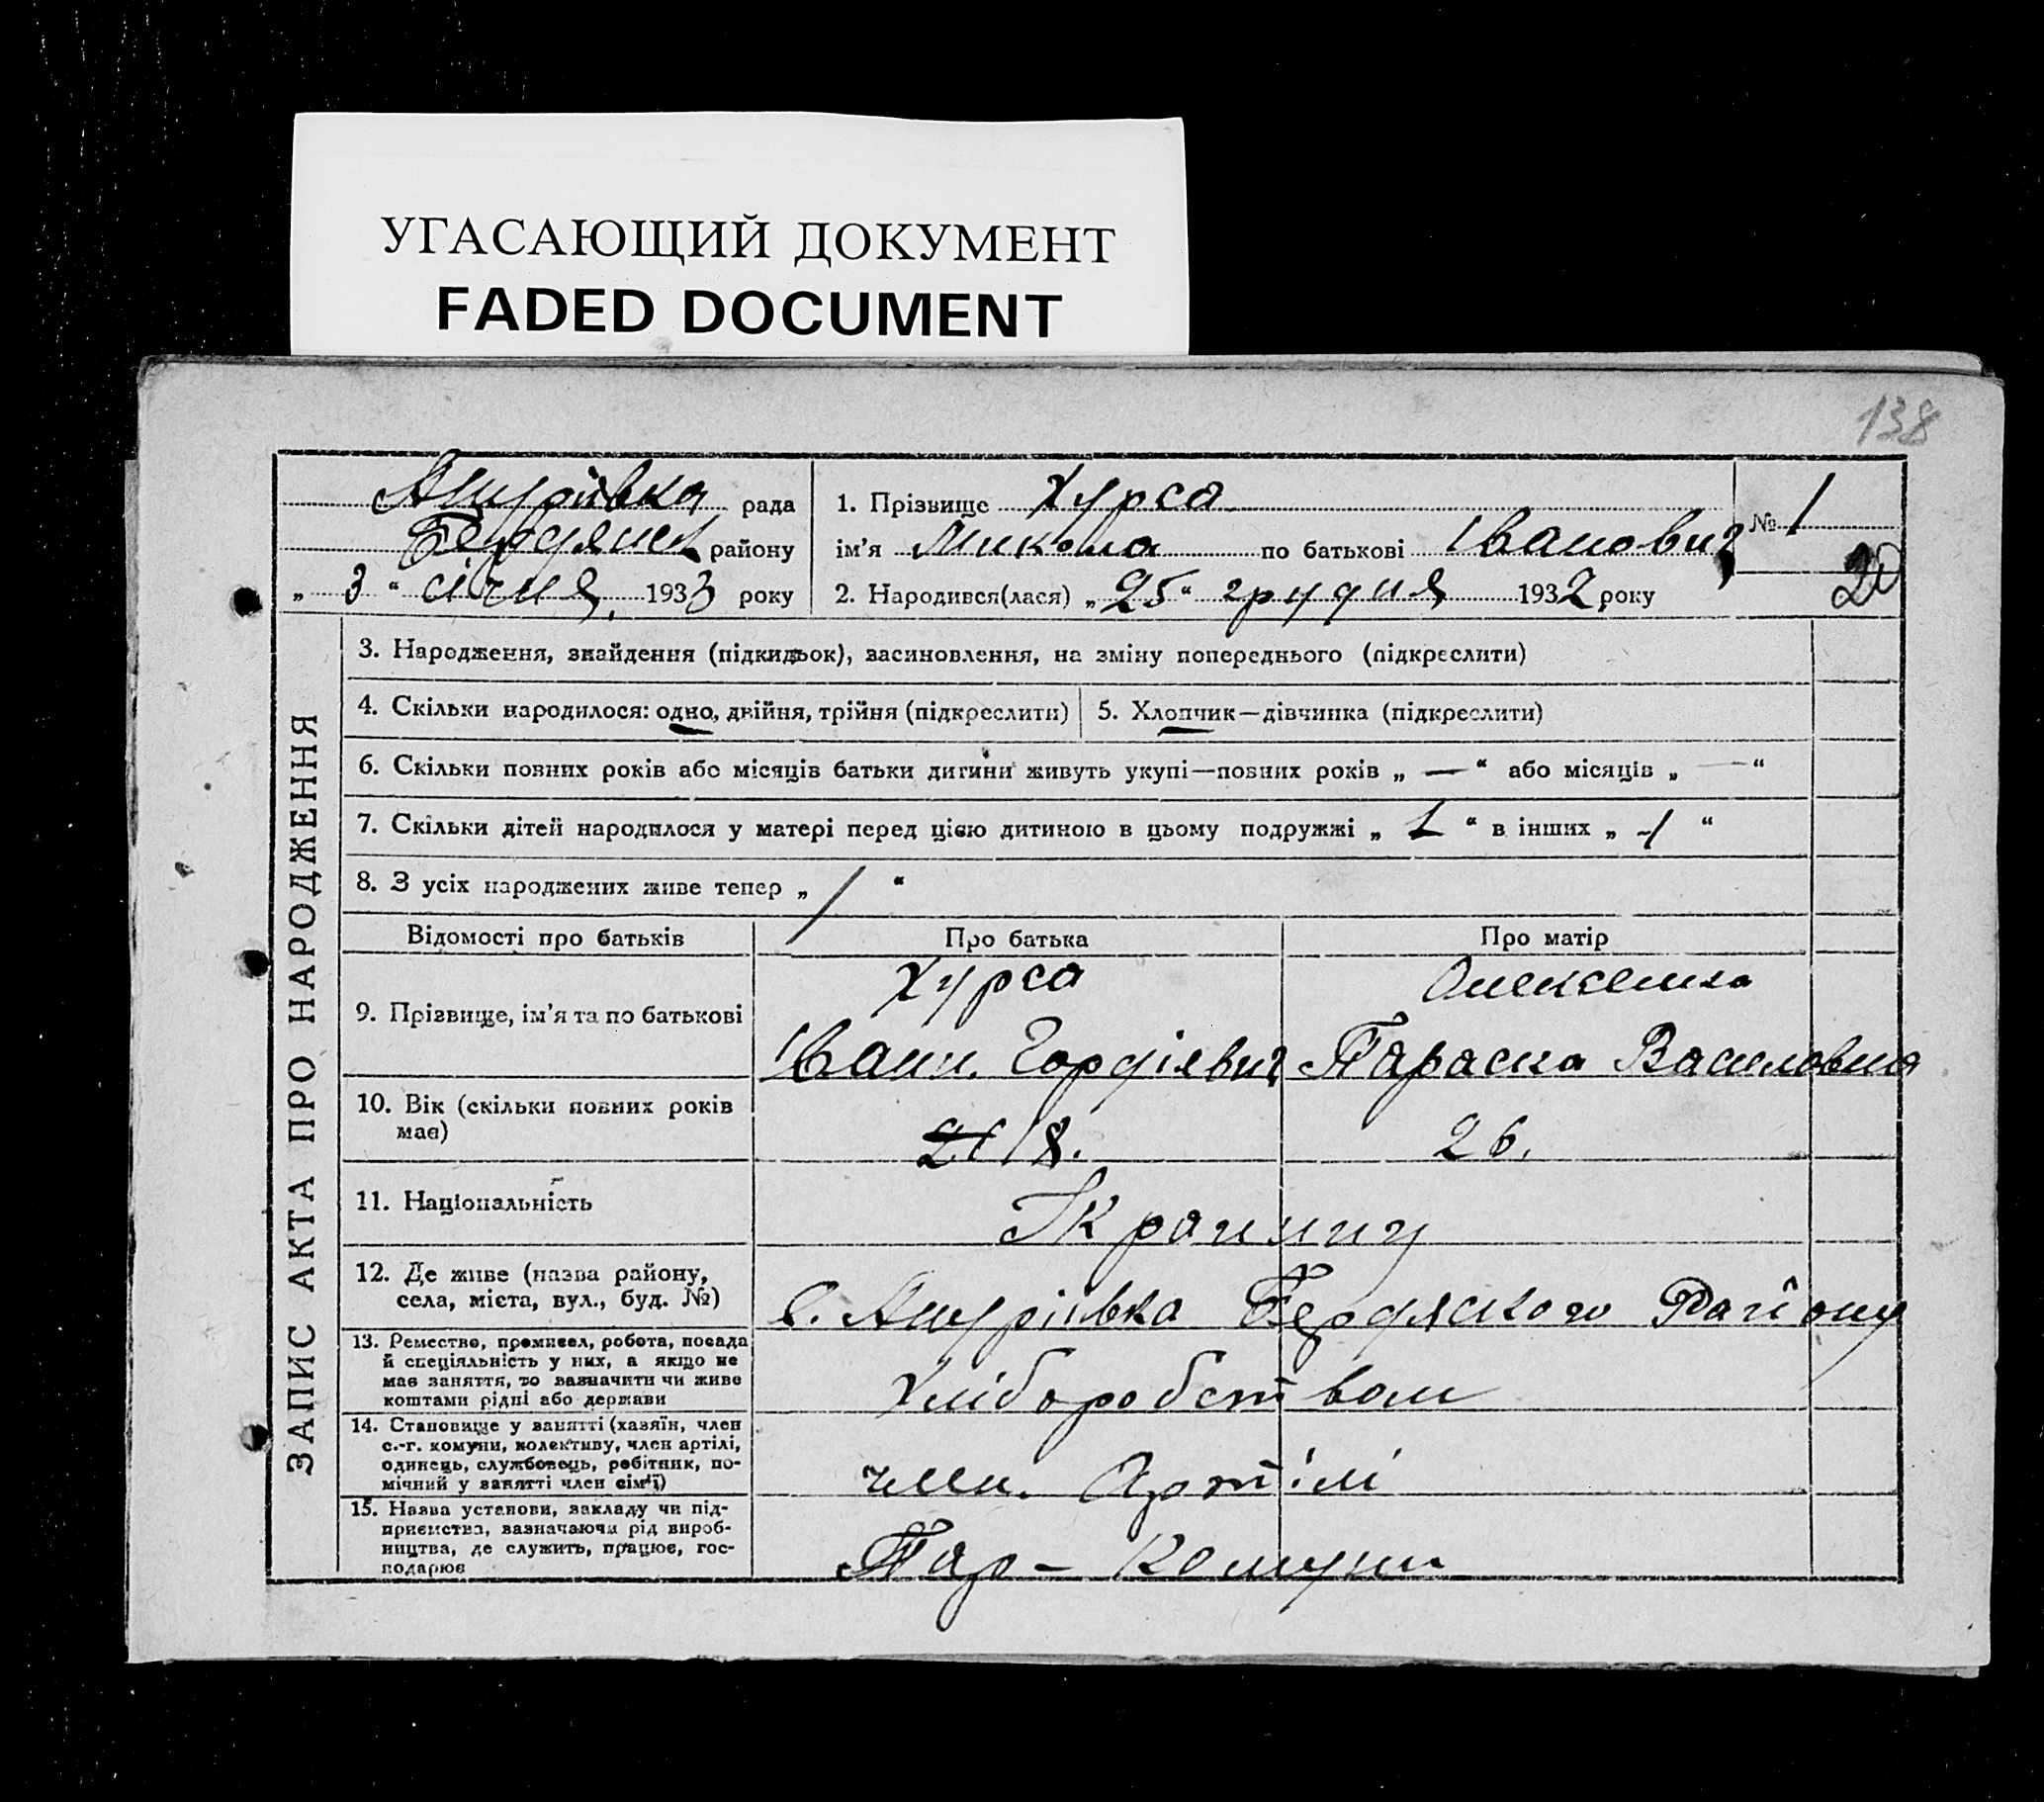 УГАСАЮЩИЙ ДОКУМЕНТ
FADED DOCUMENT
138
ЗАПИС АКТА ПРО НАРОДЖЕННЯ
рада
району
„ 3 “ січня, 1933 року
1. Прізвище Хурса
ім’я Микола по батькові Іванович
2. Народився(лася) „ 25 “ грудня 1932 року
№ 1
20
3. Народження, знайдення (підкидьок), засиновлення, на зміну попереднього (підкреслити)
4. Скільки народилося: одно, двійня, трійня (підкреслити)
5. Хлопчик—дівчинка (підкреслити)
6. Скільки повних років або місяців батьки дитини живуть укупі—повних років „ — “ або місяців „ — “
7. Скільки дітей народилося у матері перед цією дитиною в цьому подружжі „ 1 “ в інших „ “
8. З усіх народжених живе тепер „ / “
Відомості про батьків
Про батька
Про матір
9. Прізвище, ім’я та по батькові
Хурса
Іван. Гордієвич
Параска Василовна
10. Вік (скільки повних років
має)
21 18.
26.
11. Національність
12. Де живе (назва району,
села, міста, вул., буд. №)
с. Району
13. Ремество, промисел, робота, посада
й спеціяльність у них, а якщо не
має заняття, то вазначити чи живе
коштами рідні або держави
Хліборобством
14. Становище у занятті (хазяїн, член
с.-г. комуни, колективу, член артілі,
одинець, службовець, робітник, по-
мічний у занятті член сім’ї)
член. Артілі
15. Назва установи, закладу чи під-
приємства, вазначаючи рід вироб-
ництва, де служить, працює, гос-
подарює
Пар - Комуни